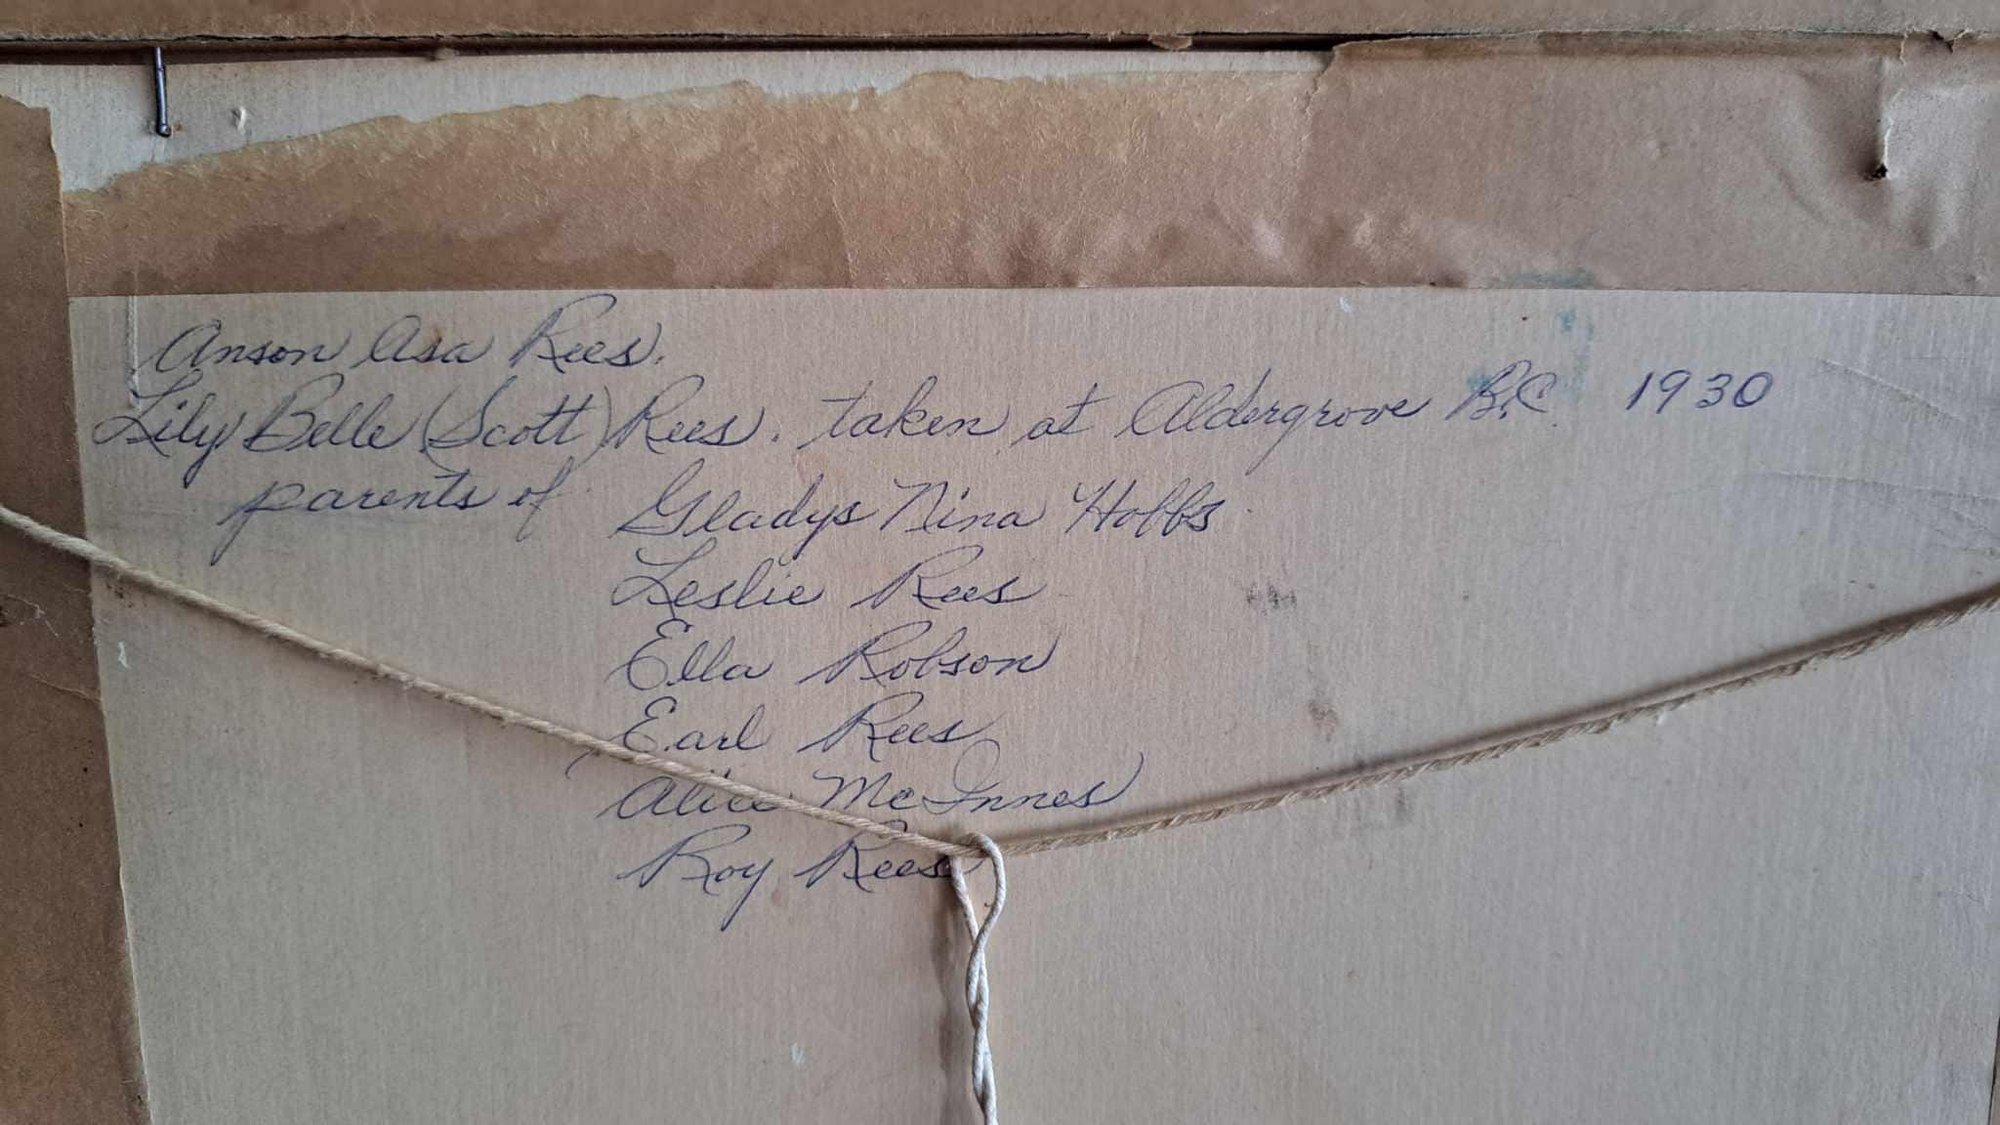 Anson Asa Rees.
Lily Belle (Scott) Rees. taken at Aldergrove B.C. 1930
parents of Gladys Nina Hobbs.
Leslie Rees
Ella Robson
Earl Rees
Alice McInnes
Roy Rees